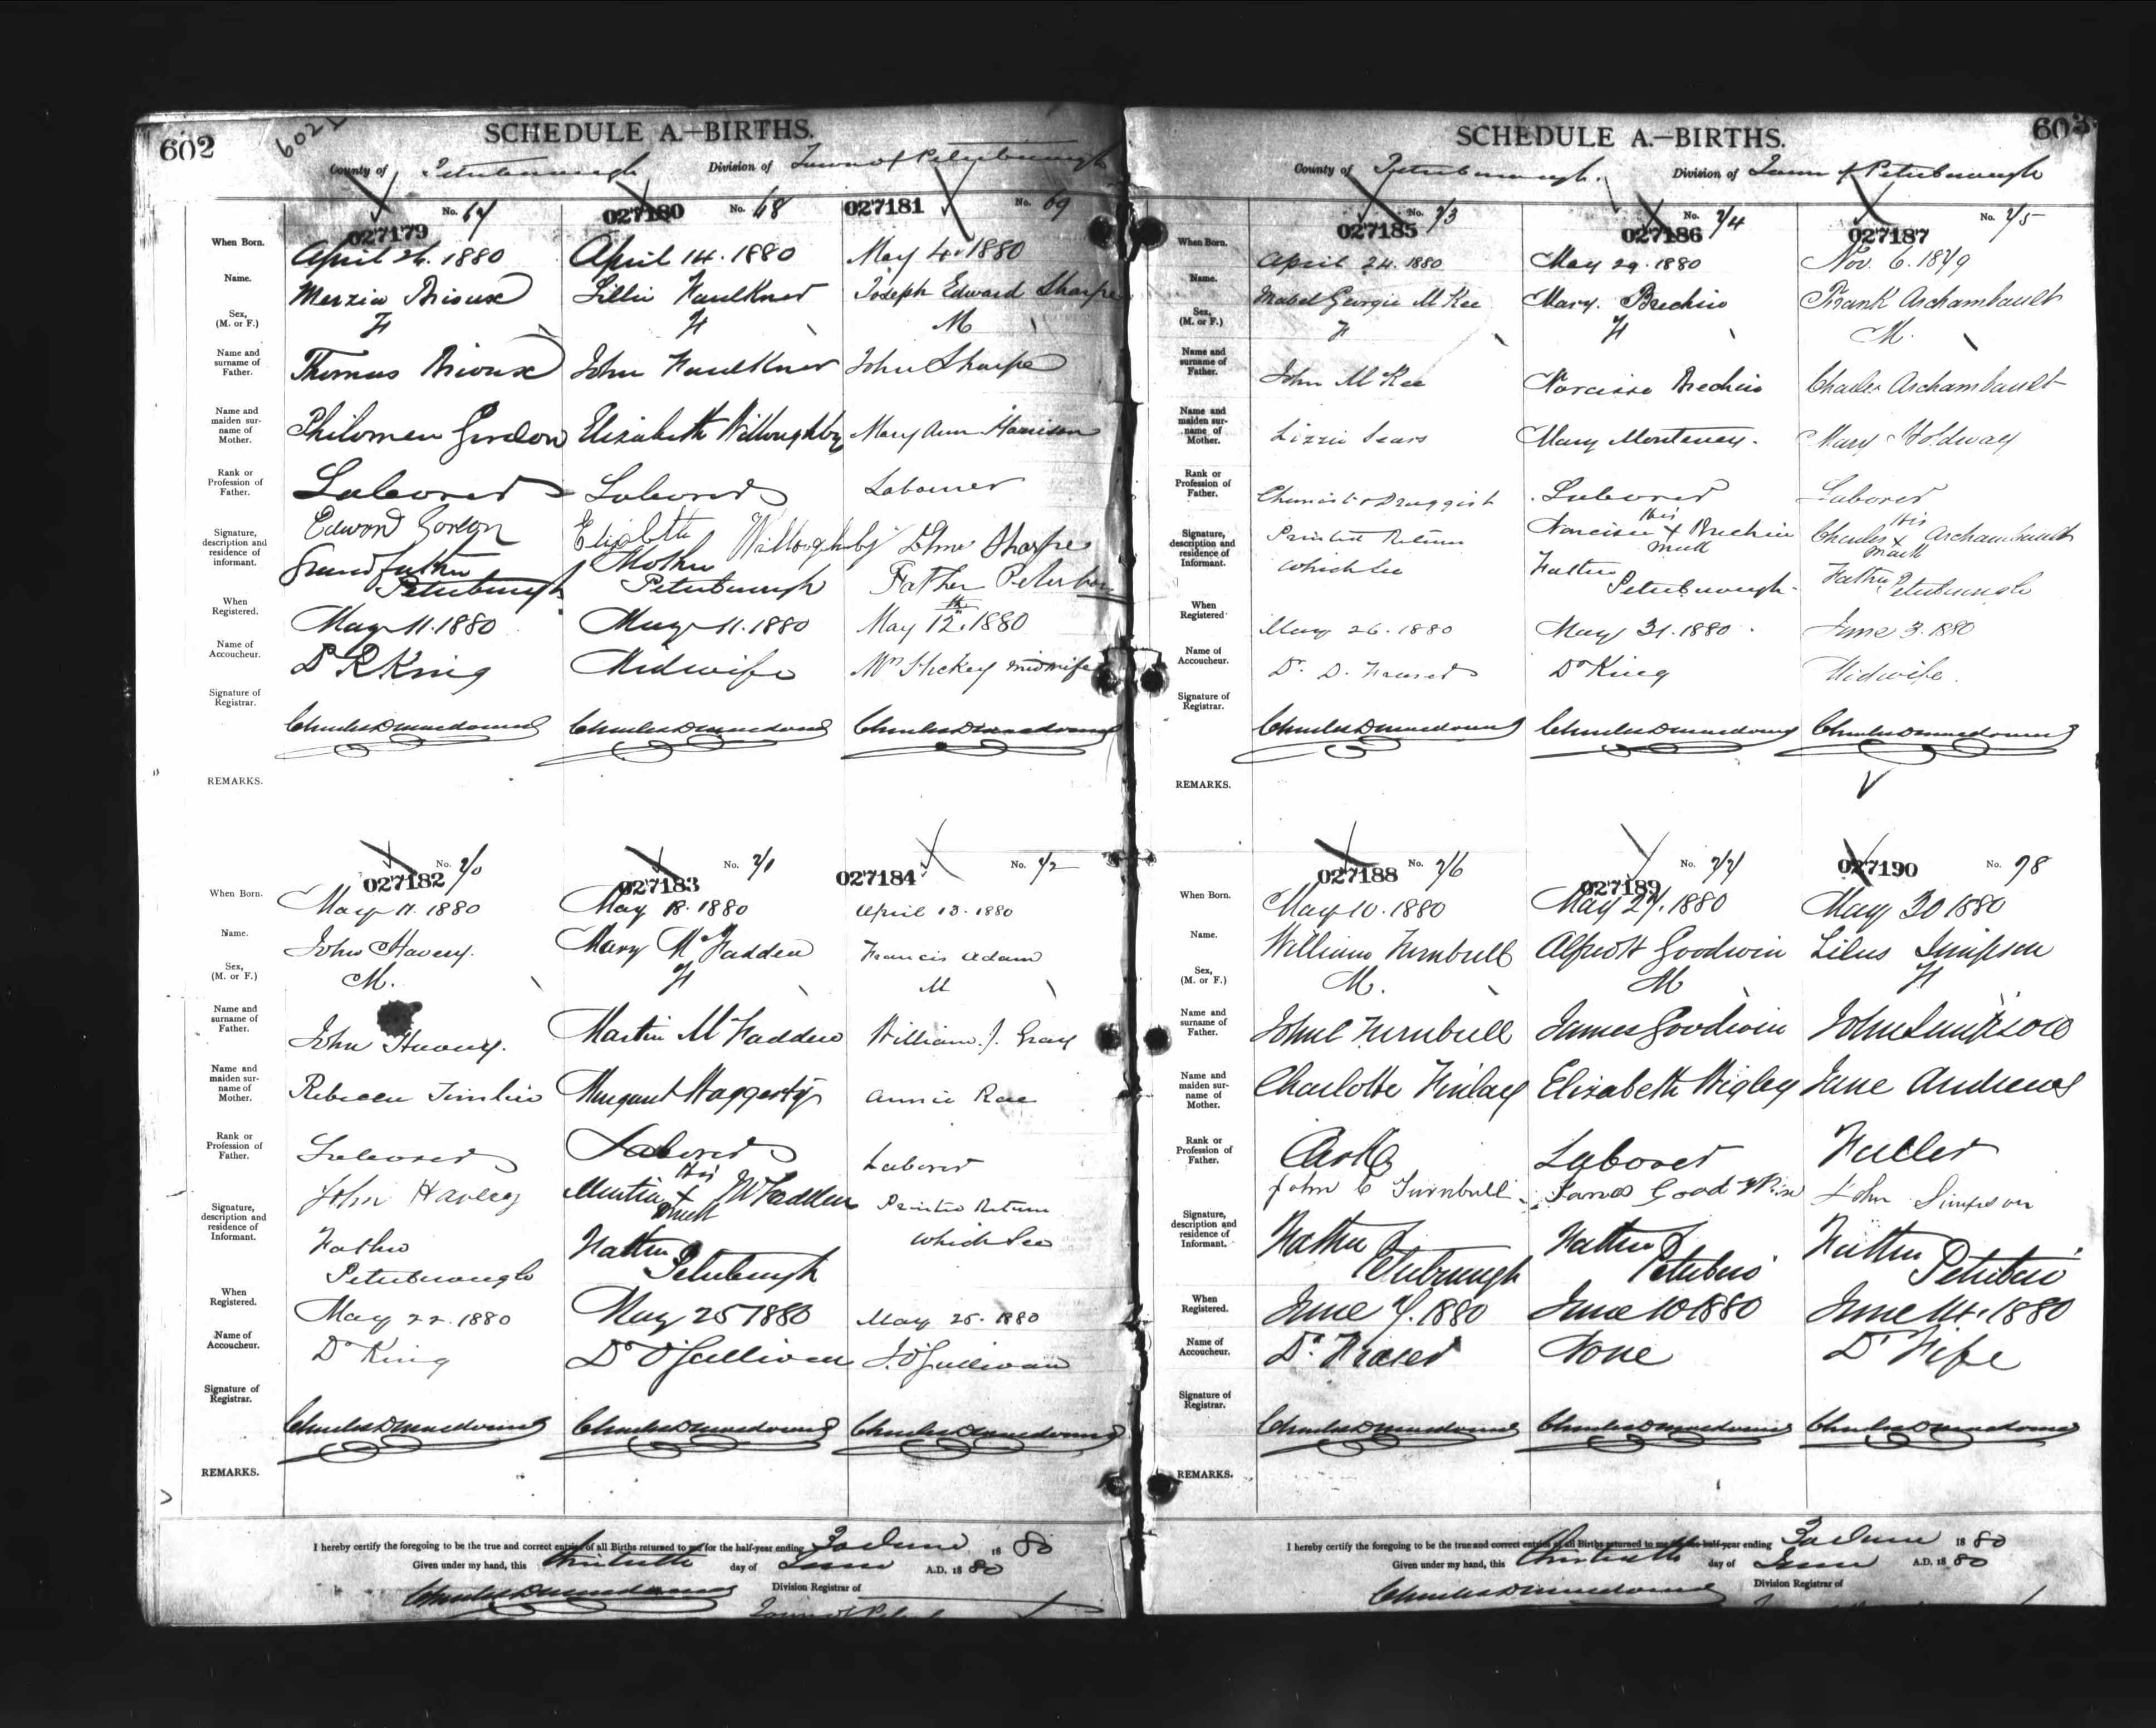 602
6021
SCHEDULE A.—BIRTHS.
County of Peterborough Division of Town of Peterborough
No. 67 No. 68 No. 69
027179 027180 027181
When Born. April 26. 1880 April 14. 1880 May 4. 1880
Name. Lillie Faulkner Joseph Edward Sharpe
Sex, (M. or F.) F F M
Name and surname of Father. Thomas John Faulkner John Sharpe
Name and maiden surname of Mother. Philomen Gordon Elizabeth Willoughby Mary Ann Harrison
Rank or Profession of Father. Laborer Laborer Labourer
Signature, description and residence of informant. Edward Gordon Elizabeth Willoughby John Sharpe
Grandfather Mother Father Peterboro
Peterborough Peterborough
When Registered. May 11. 1880 May 11. 1880 May 12th. 1880
Name of Accoucheur. Dr King Midwife Mrs Hickey midwife
Signature of Registrar.
REMARKS.
No. 70 No. 71 No. 72
027182 027183 027184
When Born. May 11. 1880 May 18. 1880 April 13. 1880
Name. John Havery. Mary McFadden Francis Adam
Sex, (M. or F.) M. F M
Name and surname of Father. John Havery. Martin McFadden William. J. Gray
Name and maiden surname of Mother. Rebecca Timlin Margaret Haggerty Annie Rae
Rank or Profession of Father. Laborer Laborer Laborer
Signature, description and residence of Informant. John Havery Martin his x mark McFadden Printed Return
Father Father which see
Peterborough Peterborough
When Registered. May 22. 1880 May 25 1880 May 25. 1880
Name of Accoucheur. Dr King Dr O'Sullivan J. O'Sullivan
Signature of Registrar.
REMARKS.
I hereby certify the foregoing to be the true and correct entries of all Births returned to me for the half-year ending 30 June 1880
Given under my hand, this Thirtieth day of June A.D. 1880
Division Registrar of
603
SCHEDULE A.—BIRTHS.
County of Peterborough. Division of Town of Peterborough
No. 73 No. 74 No. 75
027185 027186 027187
When Born. April 24. 1880 May 29. 1880 Nov. 6. 1879
Name. Mabel Georgie McKee Mary Frank Archambault
Sex, (M. or F.) F F M.
Name and surname of Father. John McKee Narcisse Charles Archambault
Name and maiden surname of Mother. Lizzie Sears Mary Monteney. Mary Holdway
Rank or Profession of Father. Chemist & Druggist Laborer Laborer
Signature, description and residence of Informant. Printed Return Narcisse his x mark Charles his x mark Archambault
which see Father Peterborough. Father Peterborough
When Registered May 26. 1880 May 31. 1880. June 3. 1880
Name of Accoucheur. Dr. D. Fraser Dr King Midwife.
Signature of Registrar.
REMARKS.
No. 76 No. 77 No. 78
027188 027189 027190
When Born. May 10. 1880 May 27. 1880 May 30 1880
Name. William Turnbull Alfred H Goodwin Lilus Simpson
Sex, (M. or F.) M. M F
Name and surname of Father. John C Turnbull James Goodwin John Simpson
Name and maiden surname of Mother. Charlotte Finlay Elizabeth Wigley Jane Andrews
Rank or Profession of Father. Clerk Laborer
Signature, description and residence of Informant. John C Turnbull James Goodwin John Simpson
Father Father Father
Peterborough Peterboro Peterboro
When Registered. June 7. 1880 June 10 1880 June 14. 1880
Name of Accoucheur. Dr. Fraser None Dr Fife
Signature of Registrar.
REMARKS.
I hereby certify the foregoing to be the true and correct entries of all Births returned to me for the half-year ending 30 June 1880
Given under my hand, this Thirtieth day of June A.D. 1880
Division Registrar of